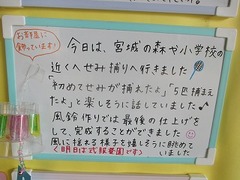 お部屋に
飾っています!
今日は、宮城の森や小学校の
近くへせみ捕りへ行きました
「初めてせみが捕れた」「5匹捕まえ
たよ」と楽しそうに話していました♪
風鈴作りでは最後の仕上げを
して、完成することができました
風に揺れる様子を嬉しそうに眺めて
いました
(明日は弐豚会園です)